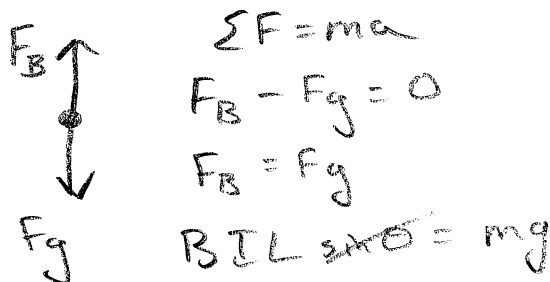 F_B
ΣF = ma
F_B - Fg = 0
F_B = Fg
Fg
BIL sinθ = mg